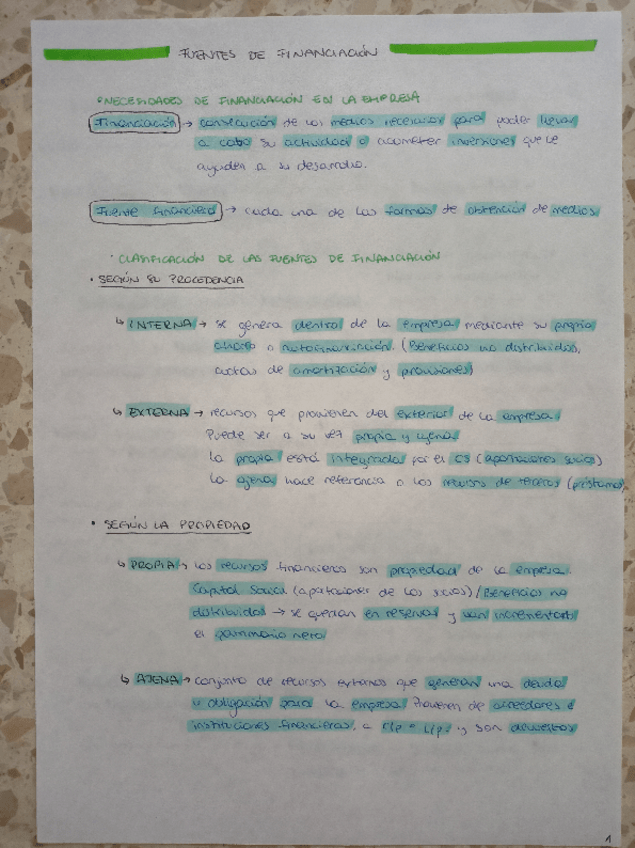 FUENTES DE FINANCIACIÓN
• NECESIDADES DE FINANCIACIÓN EN LA EMPRESA
Financiación → consecución de los medios necesarios para poder llevar
a cabo su actividad o acometer inversiones que le
ayuden a su desarrollo.
Fuente financiera → cada una de las formas de obtención de medios
• CLASIFICACIÓN DE LAS FUENTES DE FINANCIACIÓN
• SEGÚN SU PROCEDENCIA
↳ INTERNA → se genera dentro de la empresa mediante su propio
ahorro o autofinanciación. (Beneficios no distribuidos,
cuotas de amortización y provisiones)
↳ EXTERNA → recursos que provienen del exterior de la empresa.
Puede ser a su vez propia y ajena
La propia está integrada por el CS (aportaciones socios)
La ajena hace referencia a los recursos de terceros (préstamos)
• SEGÚN LA PROPIEDAD
↳ PROPIA → Los recursos financieros son propiedad de la empresa.
Capital Social (aportaciones de los socios) / Beneficios no
distribuidos → se quedan en reservas y van incrementando
el patrimonio neto
↳ AJENA → conjunto de recursos externos que generan una deuda
u obligación para la empresa. Provienen de acreedores e
instituciones financieras. a c/p o L/p. y son devueltos
1